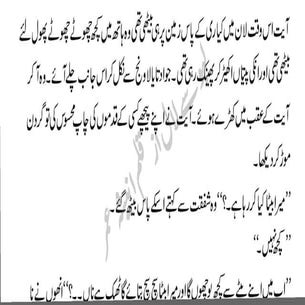 آیت اس وقت لان میں کیاری کے پاس زمین پر ہی بیٹھی تھی وہ ہاتھ میں کچھ چھوٹے چھوٹے پھول لئے
بیٹھی تھی اور انکی پتیاں اکھیڑ کر پھینک رہی تھی۔ جواد تایا لاونج سے نکل کر اس جانب چلے آئے۔ وہ آکر
آیت کے عقب میں کھڑے ہوئے۔ آیت نے اپنے پیچھے کسی کے قدموں کی چاپ محسوس کی تو گردن
موڑ کر دیکھا۔
”میرا بیٹا کیا کر رہا ہے۔؟“ وہ شفقت سے کہتے اسکے پاس بیٹھ گئے۔
”کچھ نہیں۔“
”اب میں اپنے بیٹے سے کچھ پوچھوں گا اور میرا بیٹا سچ سچ بتائے گا ٹھیک ہے ناں۔۔؟“ انھوں نے نا